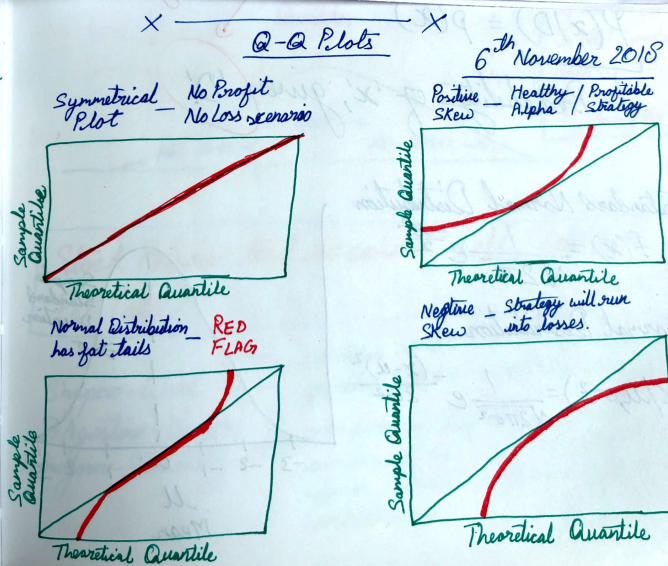 Q-Q Plots
6th November 2018
Symmetrical Plot — No Profit
No Loss scenario
Sample Quantile
Theoretical Quantile
Positive Skew — Healthy Alpha / Profitible Strategy
Sample Quantile
Theoretical Quantile
Normal Distribution has fat tails — RED FLAG
Sample Quantile
Theoretical Quantile
Negtive Skew — Strategy will run into losses.
Sample Quantile
Theoretical Quantile